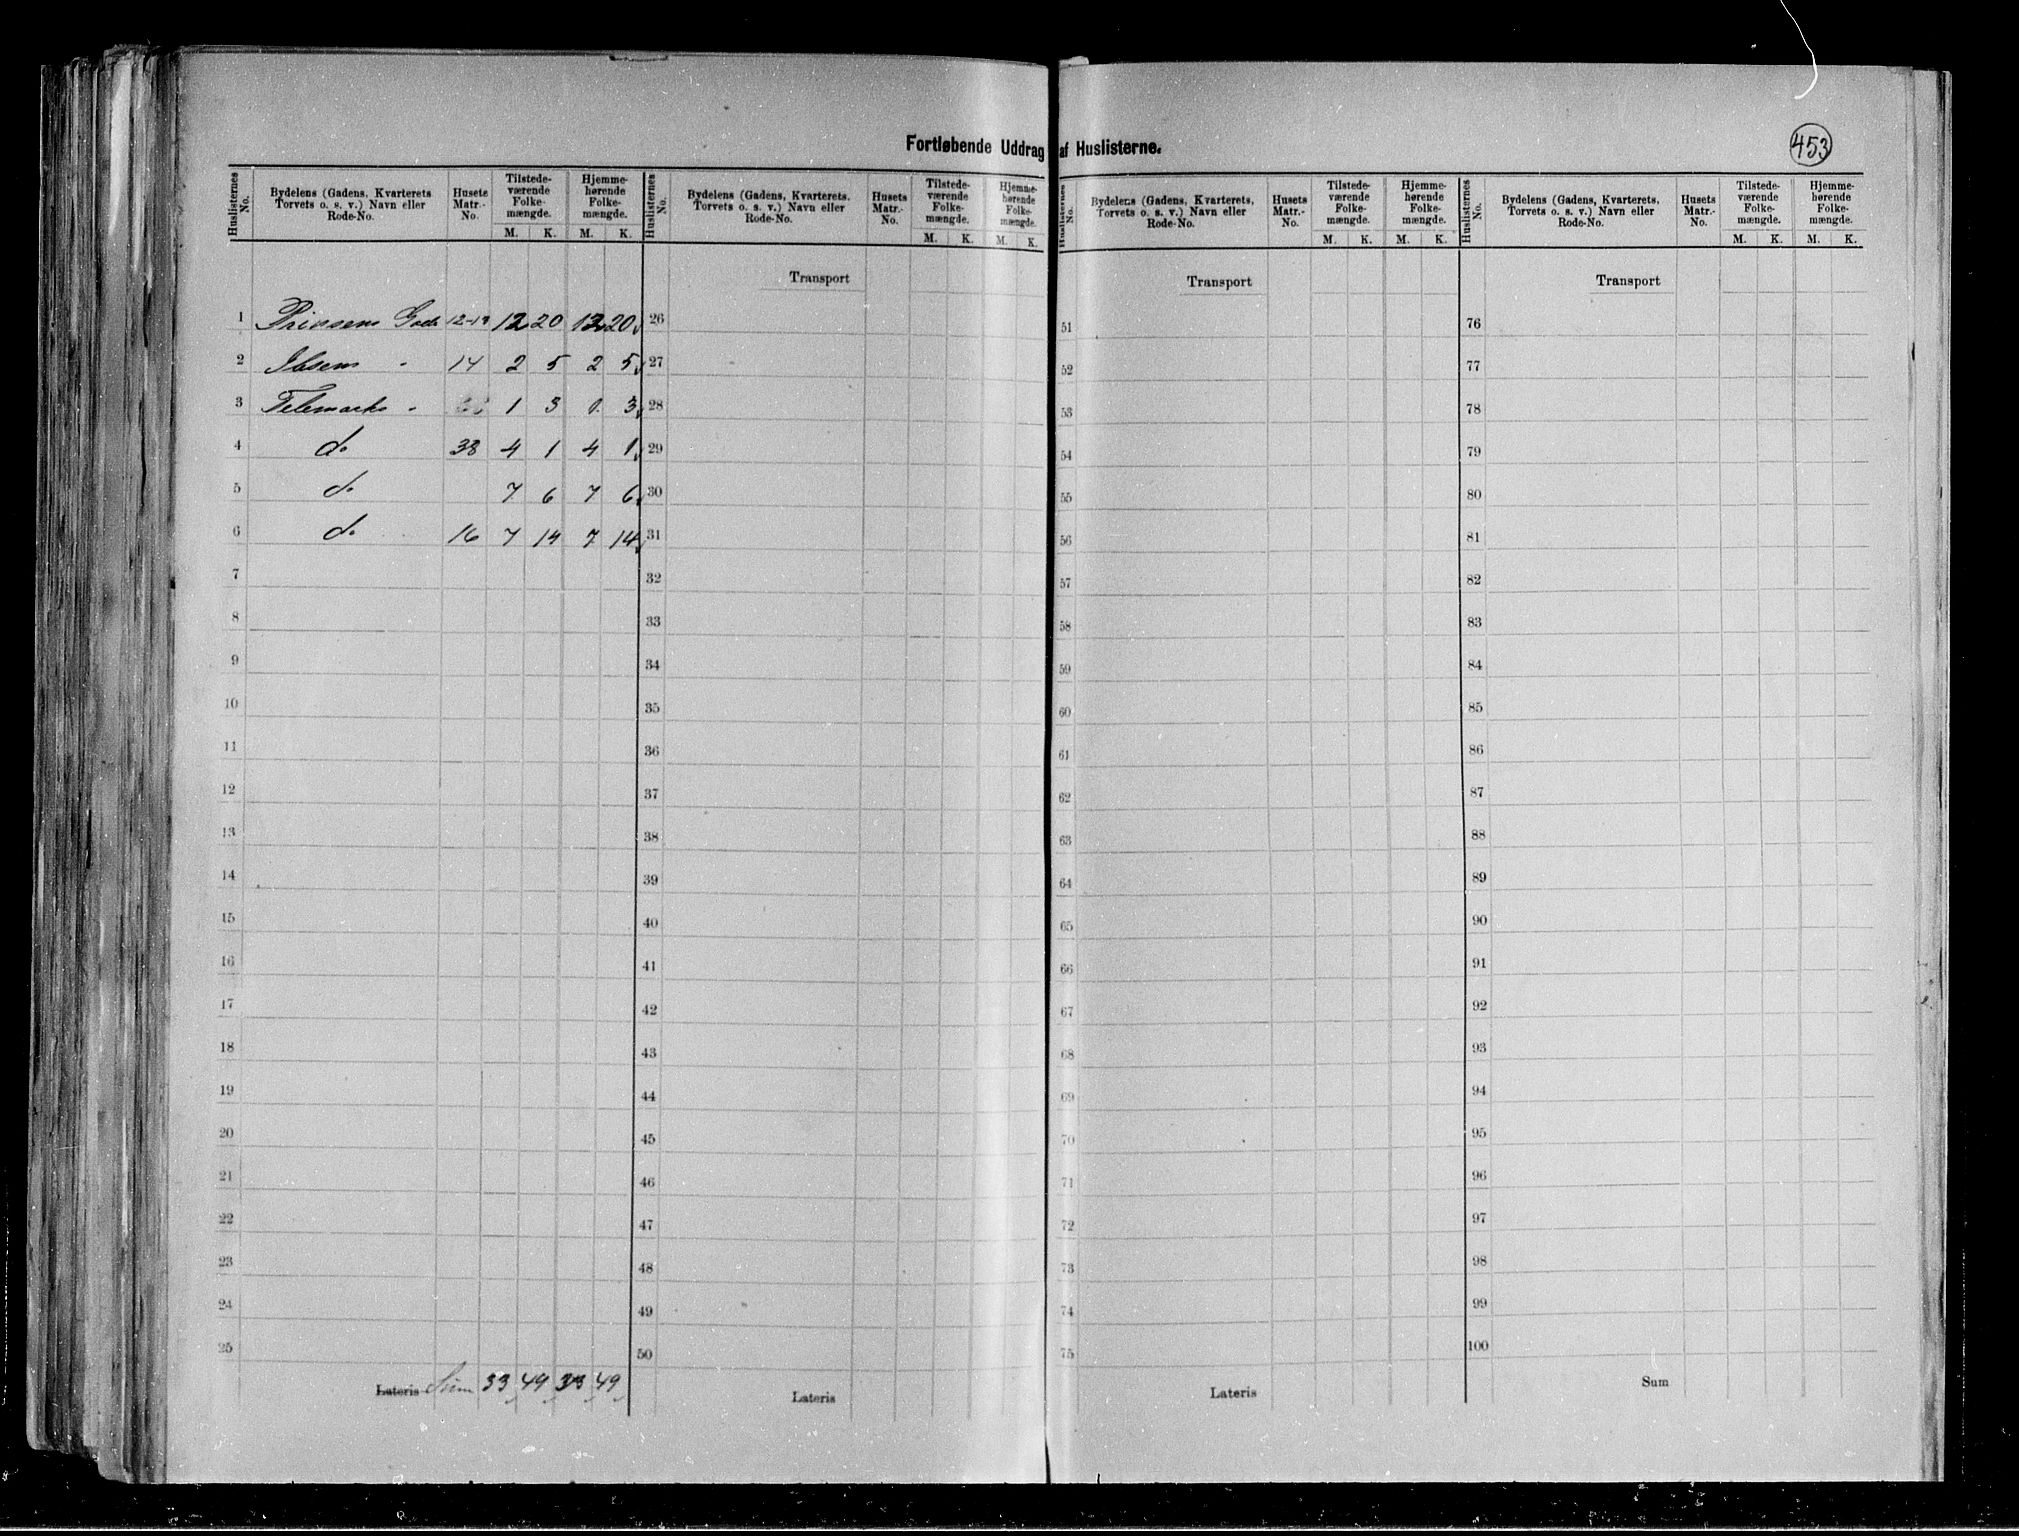 Fortløbende Uddrag af Huslisterne.
453
Huslisternes No.
Bydelens (Gadens, Kvarterets Torvets o. s. v.) Navn eller Rode-No.
Husets Matr.-No.
Tilstede-værende Folke-mængde.
Hjemme-hørende Folke-mængde.
M. K. M. K.
1 Prinsens Gade 12-13 12 20 12 20
2 Ibsens " 14 2 5 2 5
3 Telemarks " 1 3 1 3
4 do 38 4 1 4 1
5 do 7 6 7 6
6 do 16 7 14 7 14
7
8
9
10
11
12
13
14
15
16
17
18
19
20
21
22
23
24
25
Lateris Sum 33 49 33 49
Huslisternes No.
Bydelens (Gadens, Kvarterets, Torvets o. s. v.) Navn eller Rode-No.
Husets Matr.-No.
Tilstede-værende Folke-mængde.
Hjemme-hørende Folke-mængde.
M. K. M. K.
Transport
26
27
28
29
30
31
32
33
34
35
36
37
38
39
40
41
42
43
44
45
46
47
48
49
50
Lateris
Huslisternes No.
Bydelens (Gadens, Kvarterets, Torvets o. s. v.) Navn eller Rode-No.
Husets Matr.-No.
Tilstede-værende Folke-mængde.
Hjemme-hørende Folke-mængde.
M. K. M. K.
Transport
51
52
53
54
55
56
57
58
59
60
61
62
63
64
65
66
67
68
69
70
71
72
73
74
75
Lateris
Huslisternes No.
Bydelens (Gadens, Kvarterets, Torvets o. s. v.) Navn eller Rode-No.
Husets Matr.-No.
Tilstede-værende Folke-mængde.
Hjemme-hørende Folke-mængde.
M. K. M. K.
Transport
76
77
78
79
80
81
82
83
84
85
86
87
88
89
90
91
92
93
94
95
96
97
98
99
100
Sum